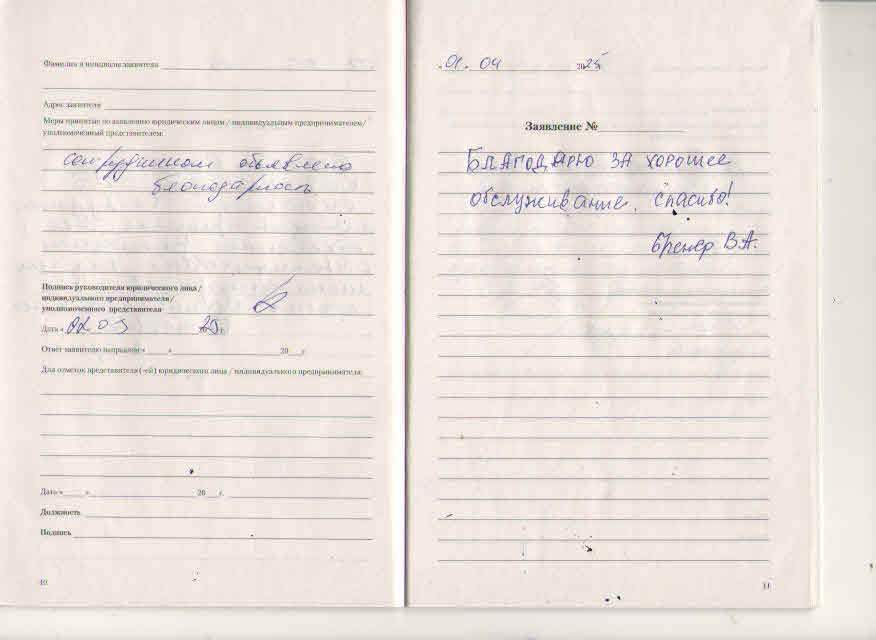 Фамилия и инициалы заявителя
Адрес заявителя
Меры принятые по заявлению юридическим лицом / индивидуальным предпринимателем/
уполномоченный представителем:
сотрудникам объявлена
благодарность
Подпись руководителя юридического лица /
индивидуального предпринимателя /
уполномоченного представителя
Дата « 02.03 2025 г.
Ответ заявителю направлен « » 20 г.
Для отметок представителя (-ей) юридического лица / индивидуального предпринимателя:
Дата « » 20 г.
Должность
Подпись
10
«01. 04 2025
Заявление №
Благодарю за хорошее
обслуживание. Спасибо!
Бренер В.А.
11